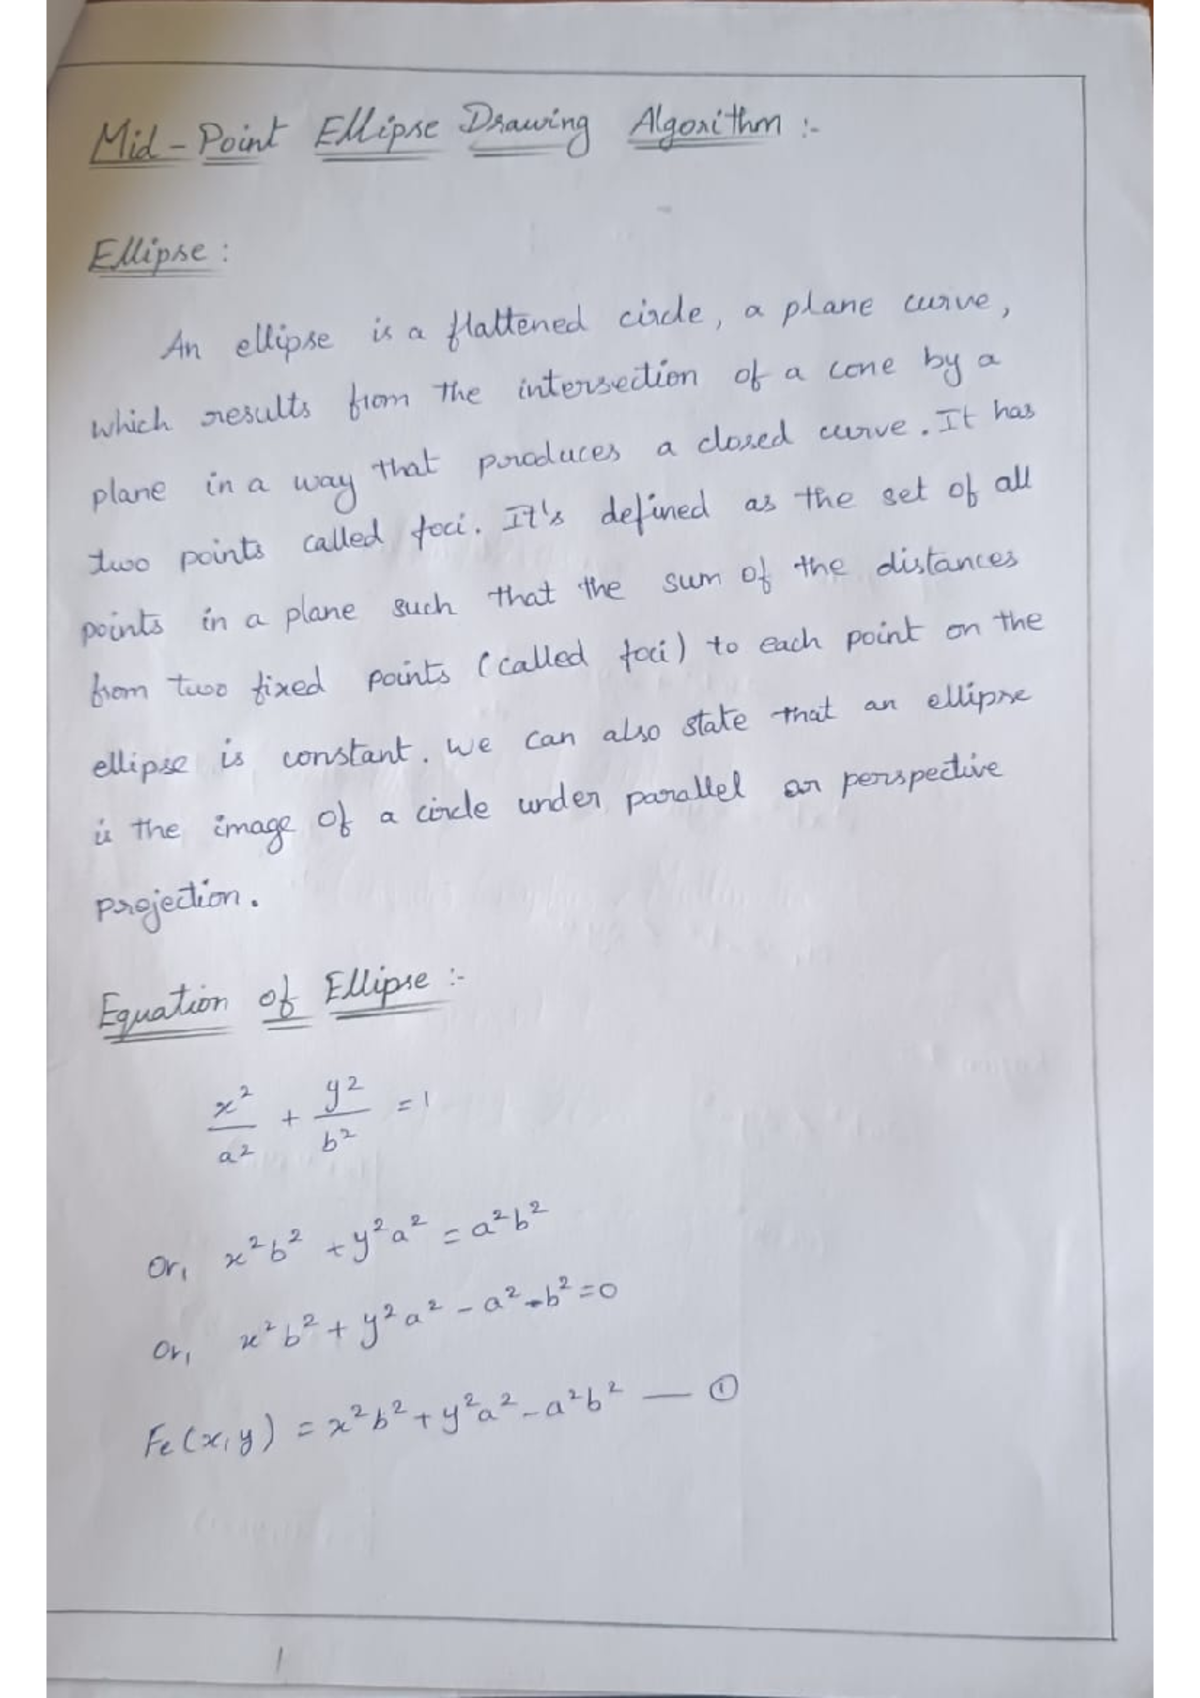 Mid-Point Ellipse Drawing Algorithm :-
Ellipse :
An ellipse is a flattened circle, a plane curve,
which results from the intersection of a cone by a
plane in a way that produces a closed curve. It has
two points called foci. It's defined as the set of all
points in a plane such that the sum of the distances
from two fixed points (called foci) to each point on the
ellipse is constant. We can also state that an ellipse
is the image of a circle under parallel or perspective
projection.
Equation of Ellipse :-
x²/a² + y²/b² = 1
Or, x²b² + y²a² = a²b²
Or, x²b² + y²a² - a²-b² = 0
Fe(x,y) = x²b² + y²a² - a²b² — ①
1